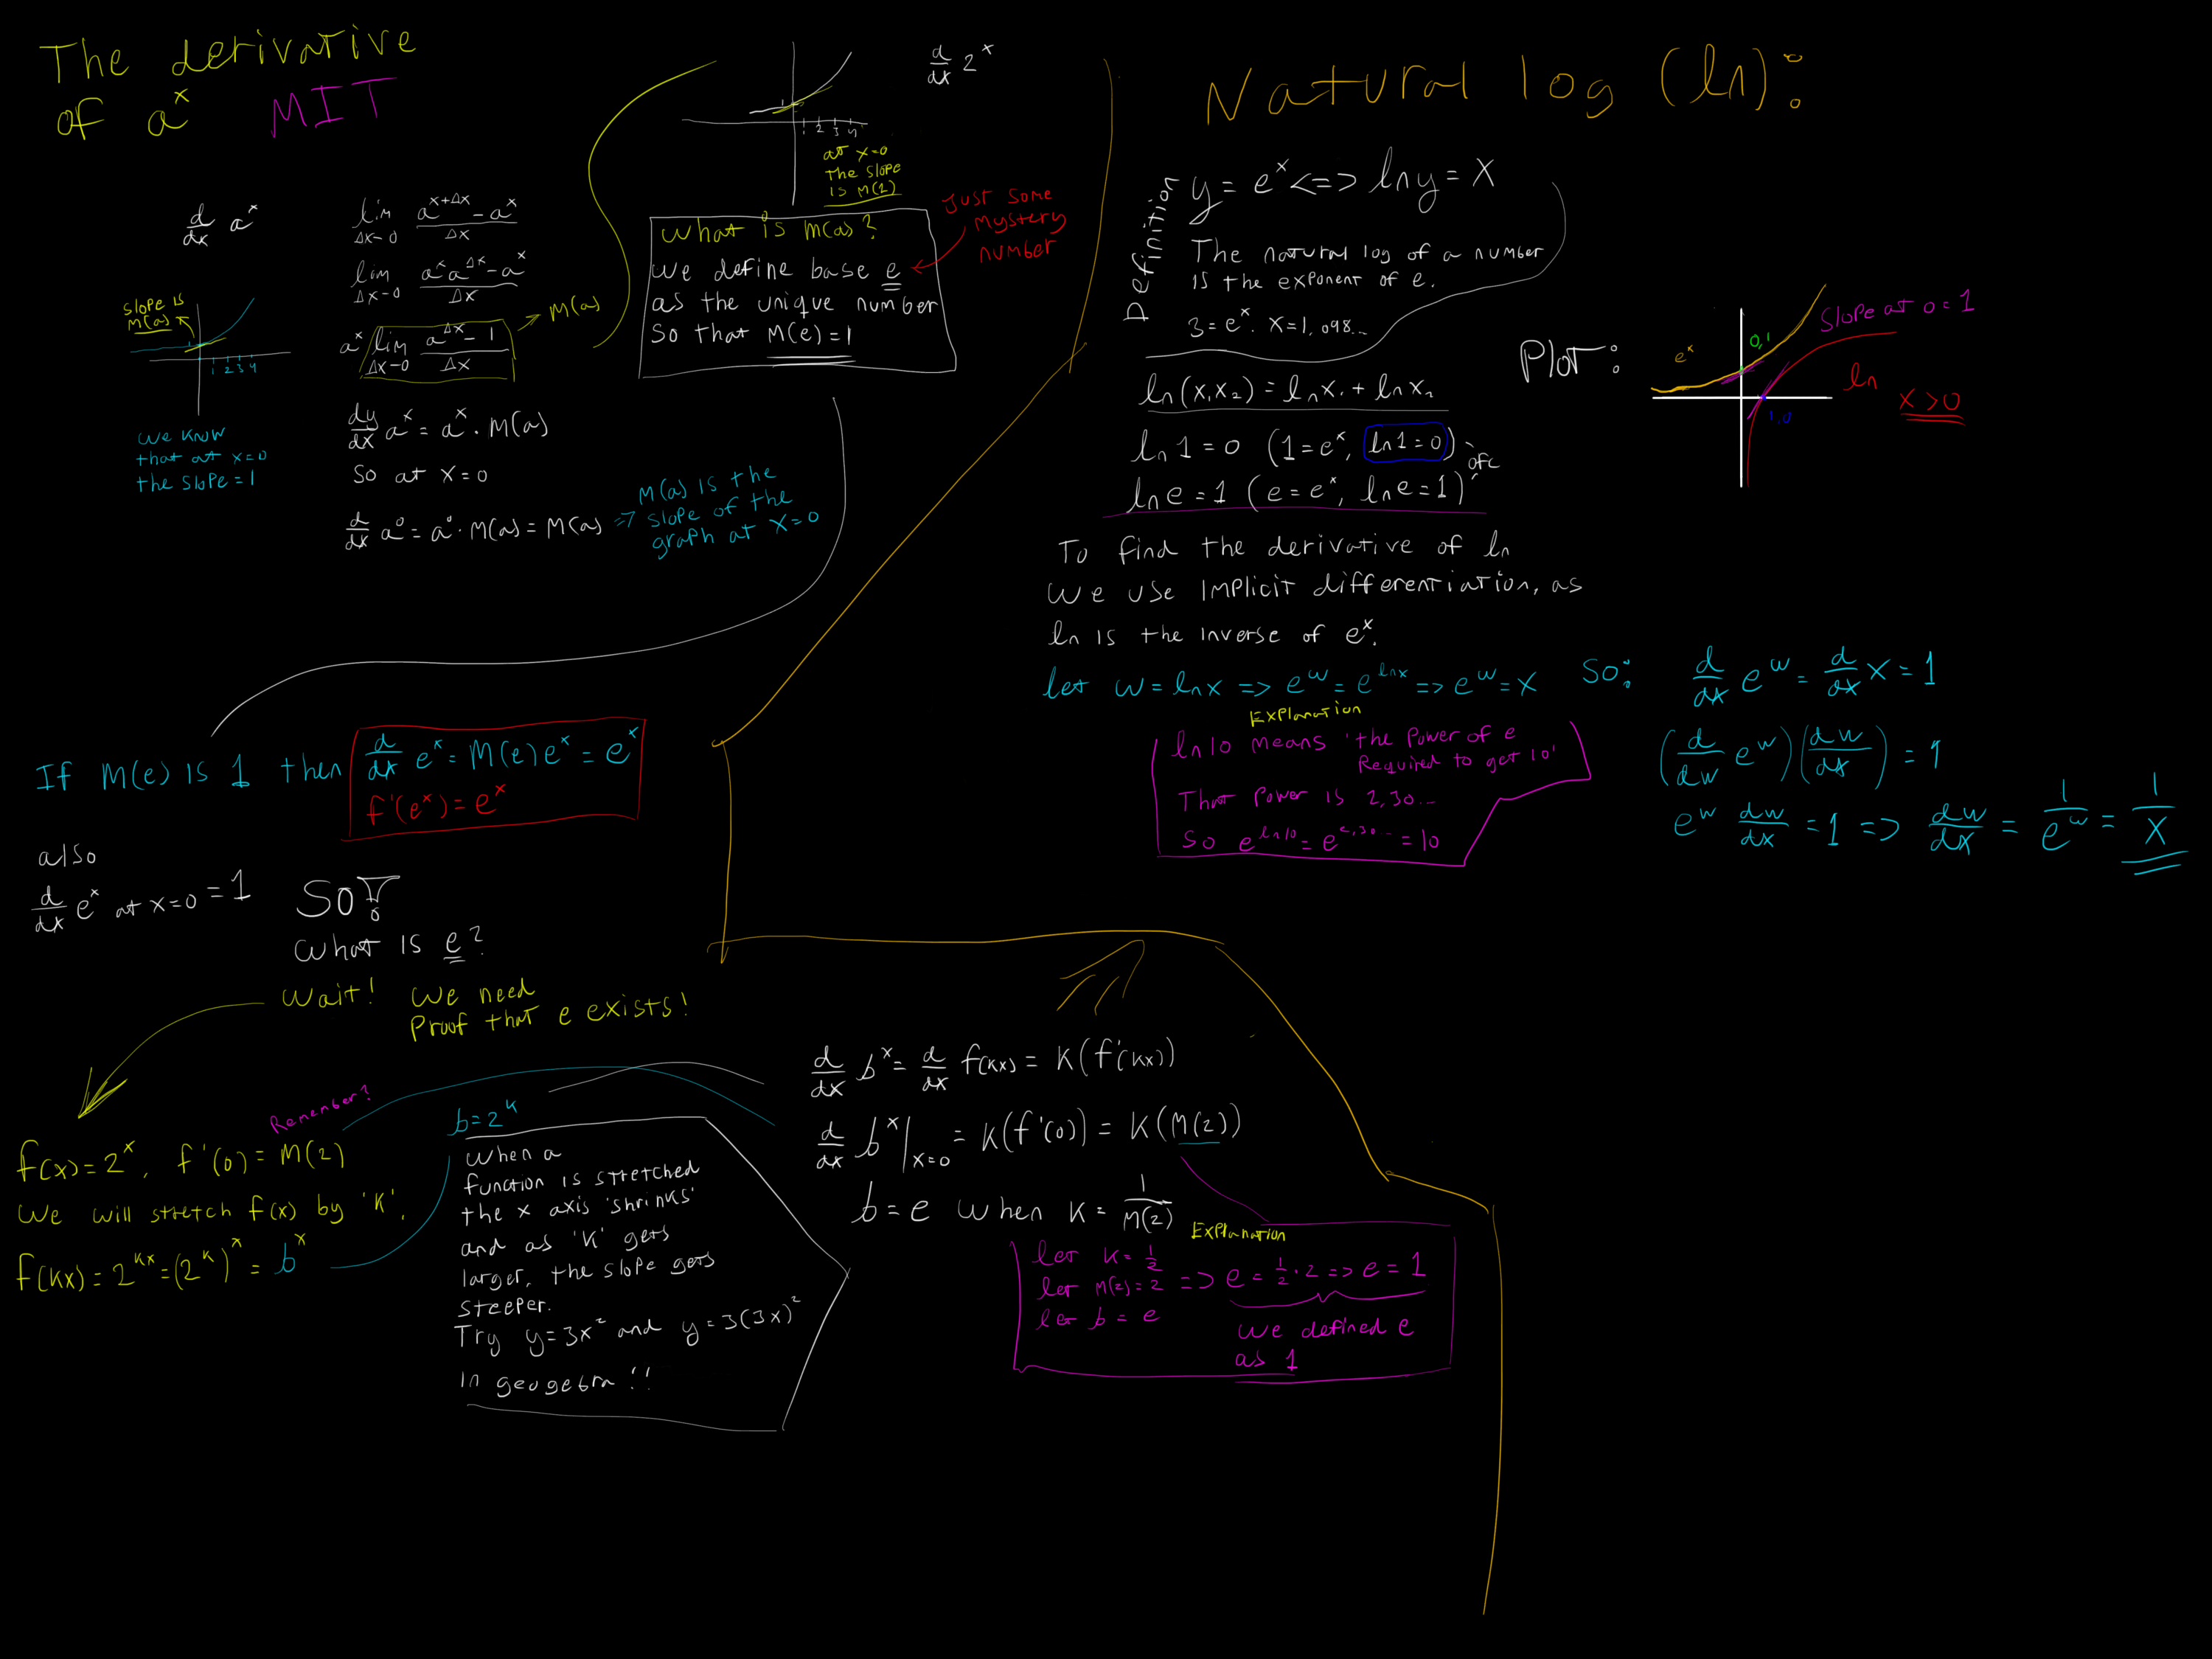 The derivative
of a^x MIT
d/dx a^x
lim Δx→0 (a^(x+Δx) - a^x)/Δx
lim Δx→0 (a^x a^Δx - a^x)/Δx
a^x lim Δx→0 (a^Δx - 1)/Δx → M(a)
slope is
M(a)
1 2 3 4
we know
that at x=0
the slope = 1
dy/dx a^x = a^x · M(a)
So at x=0
d/dx a^0 = a^0 · M(a) = M(a) =>
M(a) is the
slope of the
graph at x=0
d/dx 2^x
1
1 2 3 4
at x=0
the slope
is M(2)
what is M(a)?
we define base e
as the unique number
So that M(e)=1
Just some
mystery
number
If M(e) is 1 then d/dx e^x = M(e) e^x = e^x
f'(e^x) = e^x
also
d/dx e^x at x=0 = 1
SO
what is e?
wait! we need
Proof that e exists!
Remember?
f(x)=2^x, f'(0)=M(2)
we will stretch f(x) by 'K'.
f(Kx)=2^(Kx)=(2^K)^x = b^x
b=2^K
when a
function is stretched
the x axis 'shrinks'
and as 'K' gets
larger, the slope gets
steeper.
Try y=3x^2 and y=3(3x)^2
in geogebra!!
d/dx b^x = d/dx f(Kx) = K(f'(Kx))
d/dx b^x |x=0 = K(f'(0)) = K(M(2))
b=e when K = 1/M(2)
Explanation
let K=1/2
let M(2)=2 => e=1/2·2 => e=1
let b=e
we defined e
as 1
Natural log (ln):
Definition
y=e^x <=> ln y = x
The natural log of a number
is the exponent of e.
3=e^x. x=1,098...
ln(x₁x₂) = ln x₁ + ln x₂
ln 1 = 0 (1=e^x, ln 1=0)
ofc
ln e = 1 (e=e^x, ln e=1)
Plot:
e^x
0,1
Slope at 0=1
ln
x>0
1,0
To find the derivative of ln
we use implicit differentiation, as
ln is the inverse of e^x.
let w=ln x => e^w = e^(ln x) => e^w = x
Explanation
ln 10 means 'the power of e
Required to get 10'
That power is 2,30...
So e^(ln 10) = e^(2,30...) = 10
So: d/dx e^w = d/dx x = 1
(d/dw e^w)(dw/dx) = 1
e^w dw/dx = 1 => dw/dx = 1/e^w = 1/x